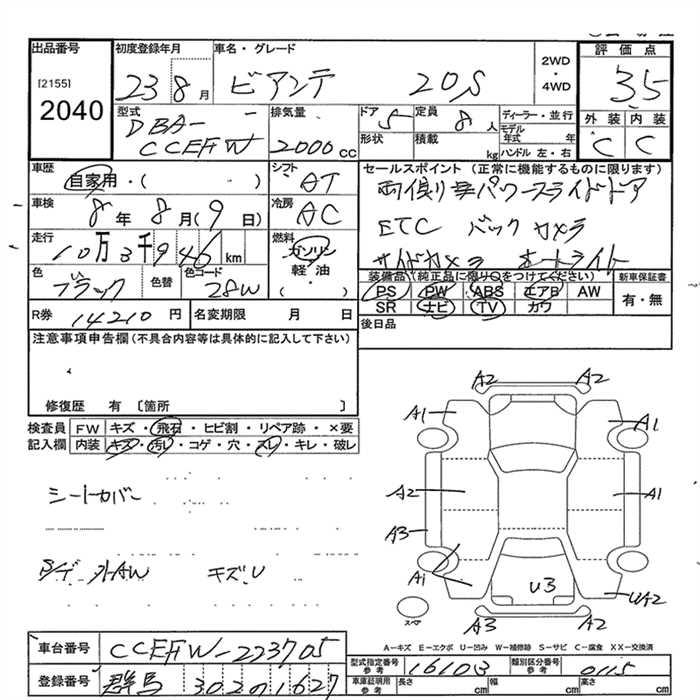 出品番号
[2155]
2040
初度登録年月
23 8月
車名・グレード
ビアンテ 20S
2WD
・
4WD
評価点
3.5
外装 内装
C C
型式
DBA-
CCEFW
排気量
2000cc
ドア 5
形状
定員 8人
積載 kg
ディーラー・並行
モデル年式 年
ハンドル 左・右
車歴
自家用・( )
シフト
AT
車検
8年 8月(9日)
冷房
AC
走行
10万3千946km
燃料
ガソリン
軽・油
( )
色
ブラック
色替
色コード
28W
セールスポイント (正常に機能するものに限ります)
両側パワースライドドア
ETC バックカメラ
サイドカメラ オートライト
装備品(純正品に限り○をつけてください)
PS PW ABS エアB AW
SR ナビ TV カワ
新車保証書
有・無
R券 14210円
名変期限 月 日
後日品
注意事項申告欄(不具合内容等は具体的に記入して下さい)
修復歴 有 〔箇所 〕
検査員
記入欄
FW キズ・飛石・ヒビ割・リペア跡・×要
内装 キズ・汚レ・コゲ・穴・スレ・キレ・破レ
シートカバー
外AW キズU
A2 A2
A1 A1
A2 A1
A3
A1 U3 UA2
スペア
A3 A2
A-キズ E-エクボ U-凹み W-補修跡 S-サビ C-腐食 XX-交換済
車台番号 CCEFW-223705
登録番号 群馬 302 の 1627
型式指定番号
参考
16103
類別区分番号
参考
0115
車庫証明用
参考
長さ cm 幅 cm 高さ cm